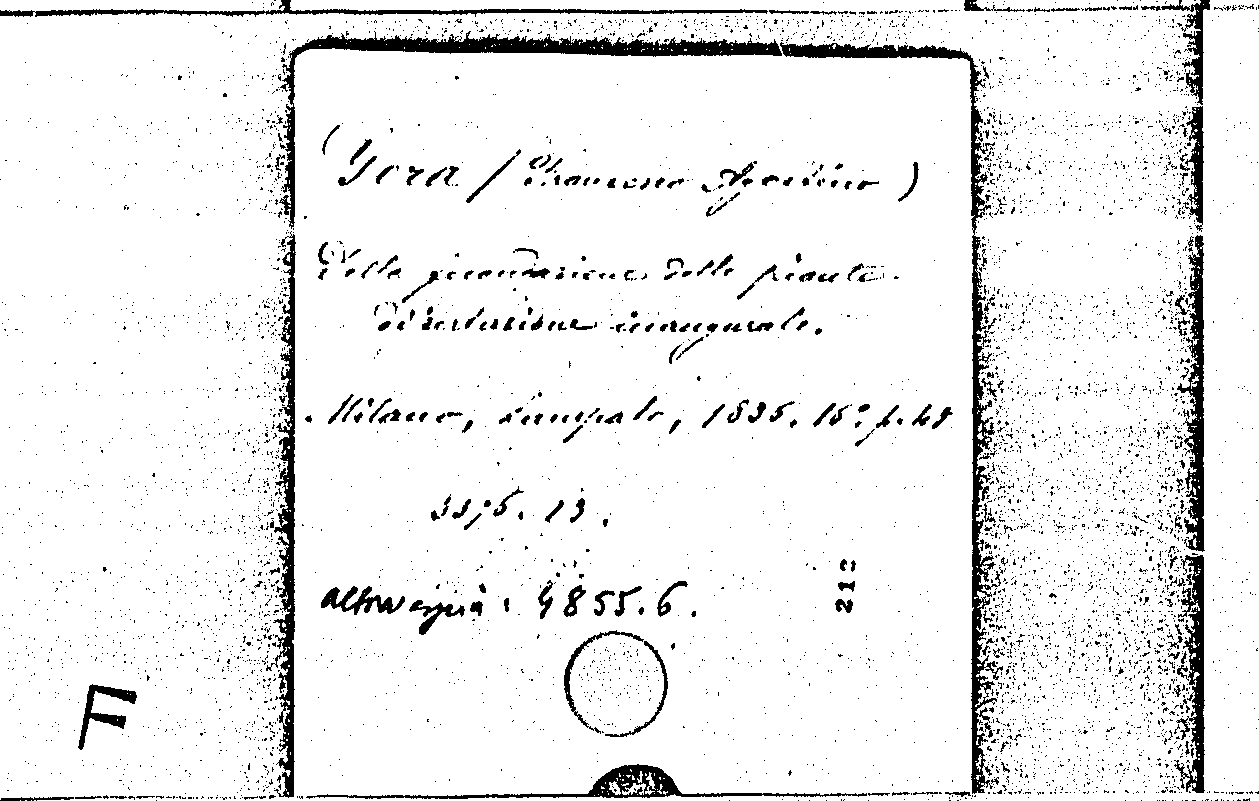 (Yora / Francesco Agostino)
Della fecondazione delle piante.
dissertazione inaugurale.
Milano, Lampato, 1835. 16° p. 48
3375. 13.
altra copia: 4855.6.
21
F